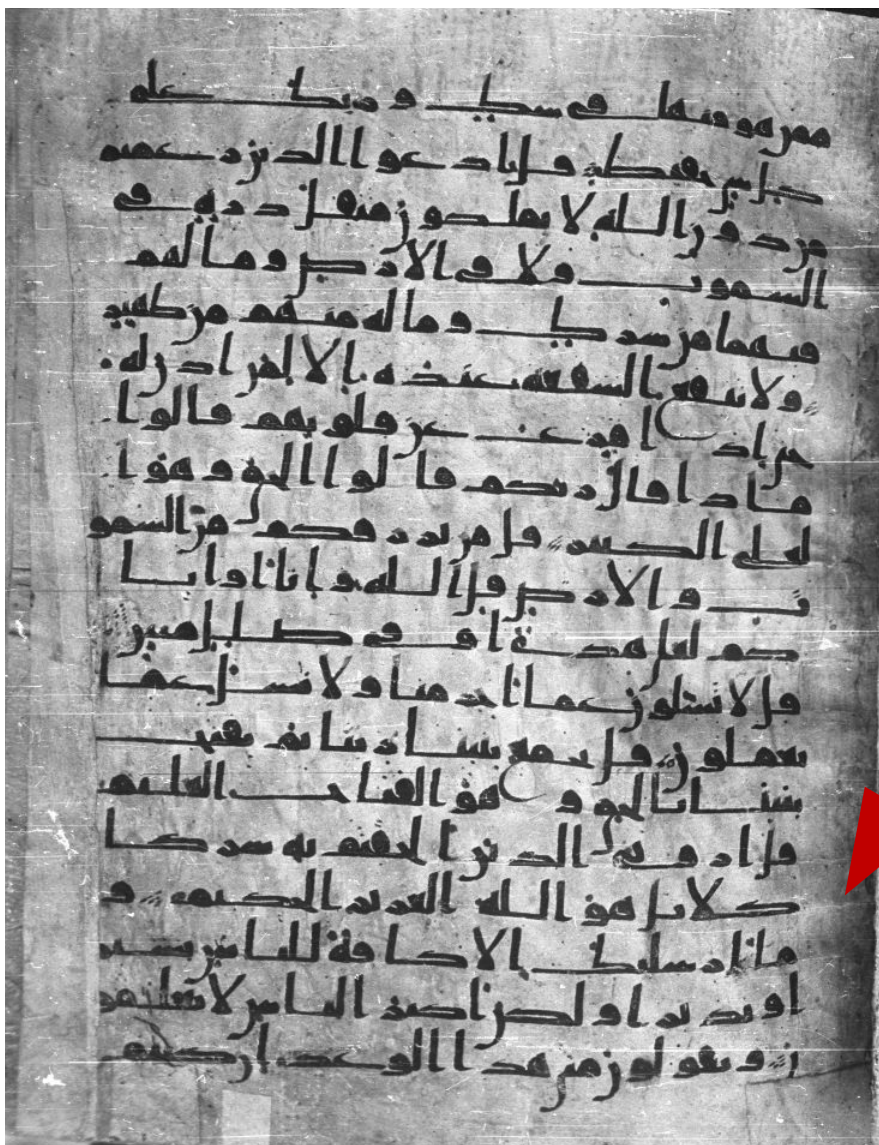 ممن هو منها في شك وربك على
كل شي حفيظ قل ادعوا الذين زعمتم
من دون الله لا يملكون مثقال ذرة في
السموت ولا في الارض وما لهم
فيهما من شرك وما له منهم من ظهير
ولا تنفع الشفعة عنده الا لمن اذن له
حتى اذا فزع عن قلوبهم قالوا
ماذا قال ربكم قالوا الحق وهو ا
لعلي الكبير قل من يرزقكم من السمو
ت والارض قل الله وانا او ايا
كم لعلى هدى او في ضلل مبين
قل لا تسئلون عما اجرمنا ولا نسئل عما
تعملون قل يجمع بيننا ربنا ثم يفتح
بيننا بالحق وهو الفتاح العليم
قل اروني الذين الحقتم به شركا
كلا بل هو الله العزيز الحكيم و
ما ارسلنك الا كافة للناس بشير
ا ونذيرا ولكن اكثر الناس لا يعلمو
ن ويقولون متى هذا الوعد ان كنتم